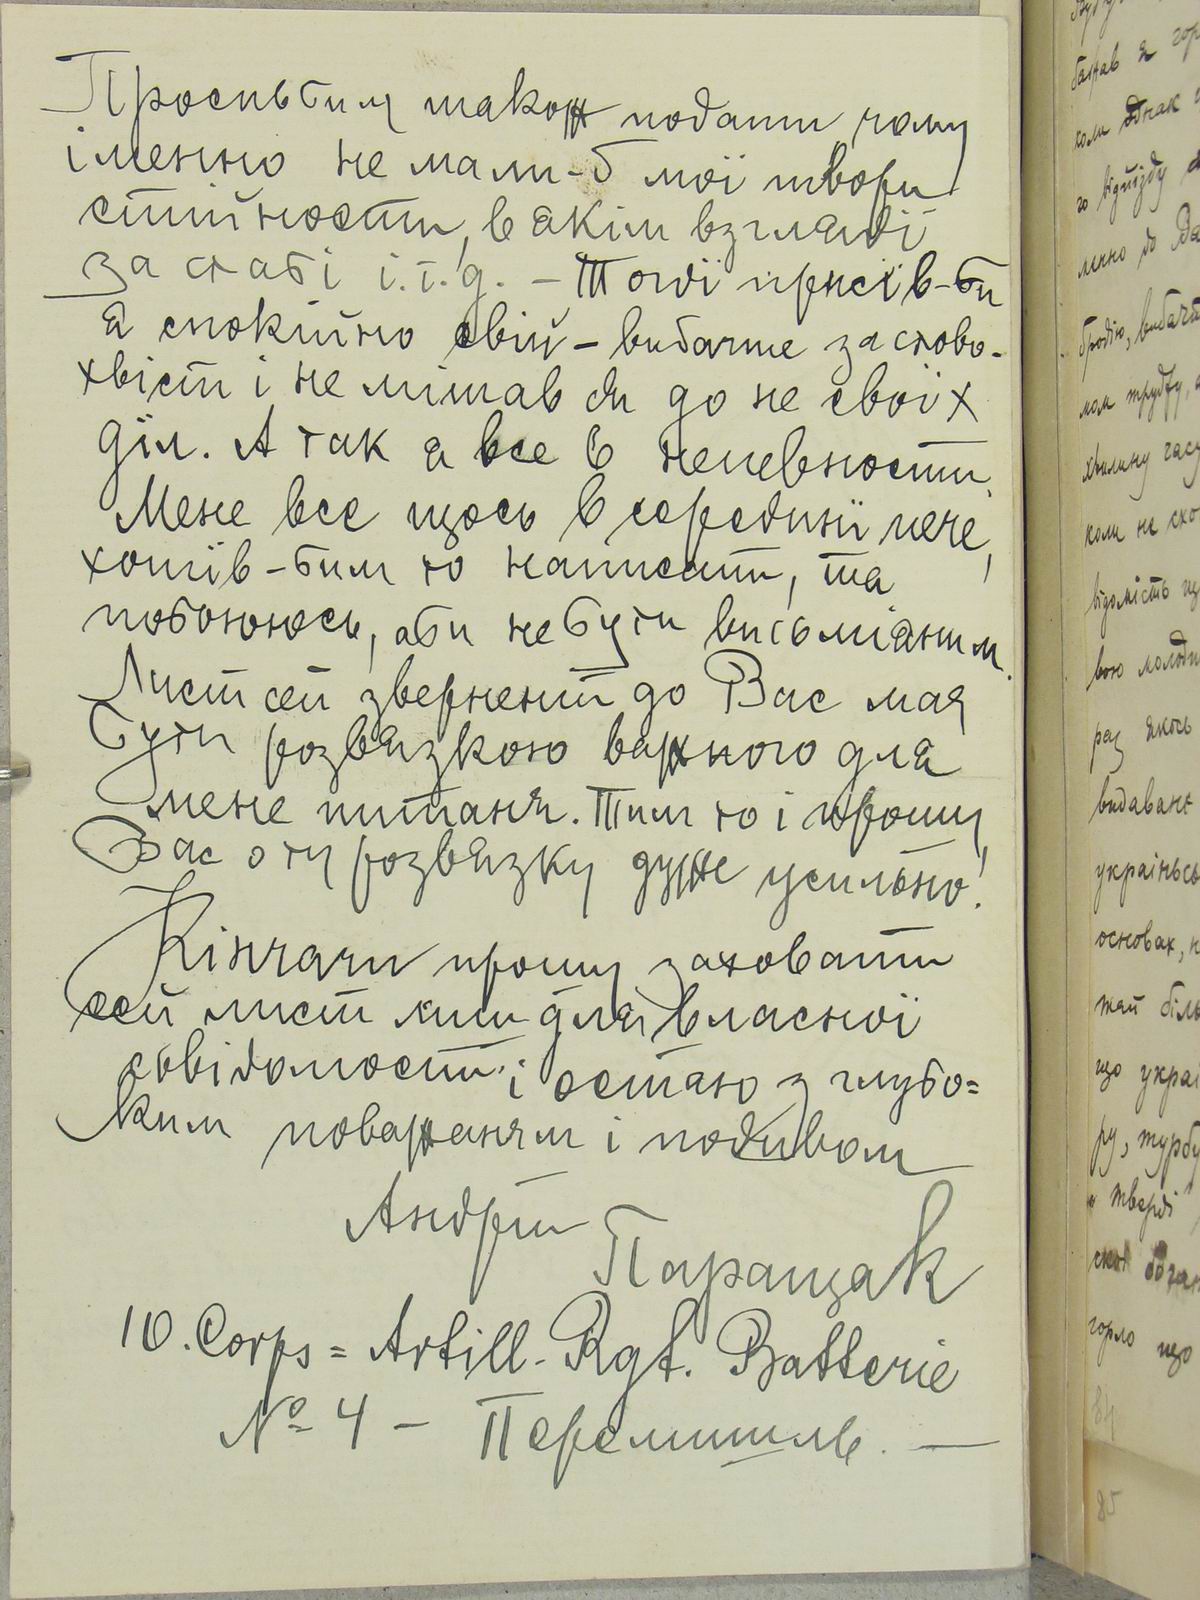 Просив бим також подати, чому
іменно не мали-б мої твори
стійности, в якім взгляді
за слабі і.т.д. – Тоді присів-би
я спокійно свій – вибачте за слово –
хвіст і не мішав ся до не своїх
діл. А так я все в непевности.
Мене все щось в середині пече,
хотів-бим то написати, та
побоююсь, аби не бути висьміяним.
Лист сей звернений до Вас мая
бути розвязкою важного для
мене питаня. Тим то і прошу
Вас о ту розвязку дуже усильно!
Кінчачи прошу заховати
сей лист лиш для власної
сьвідомости і остаю з глубо=
ким поважанєм і подивом
Андрій
Паращак
10. Corps = Artill. Rgt. Batterie
№ 4 – Перемишль. —
бажав я гор
коли однак
го відїзду
мено до Ва
бродію, вибачт
мом труду,
хвилину часу
коли не схо
відомість що
вою молоди
раз якось
видаванє
українсь
основах, н
жай біль
що украї
ру, журбу
і тверді
горло що
84
85